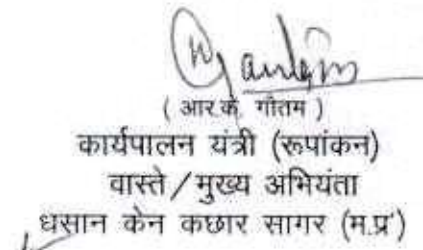 ( आर.के. गौतम )
कार्यपालन यंत्री (रूपांकन)
वास्ते / मुख्य अभियंता
धसान केन कछार सागर (म.प्र)